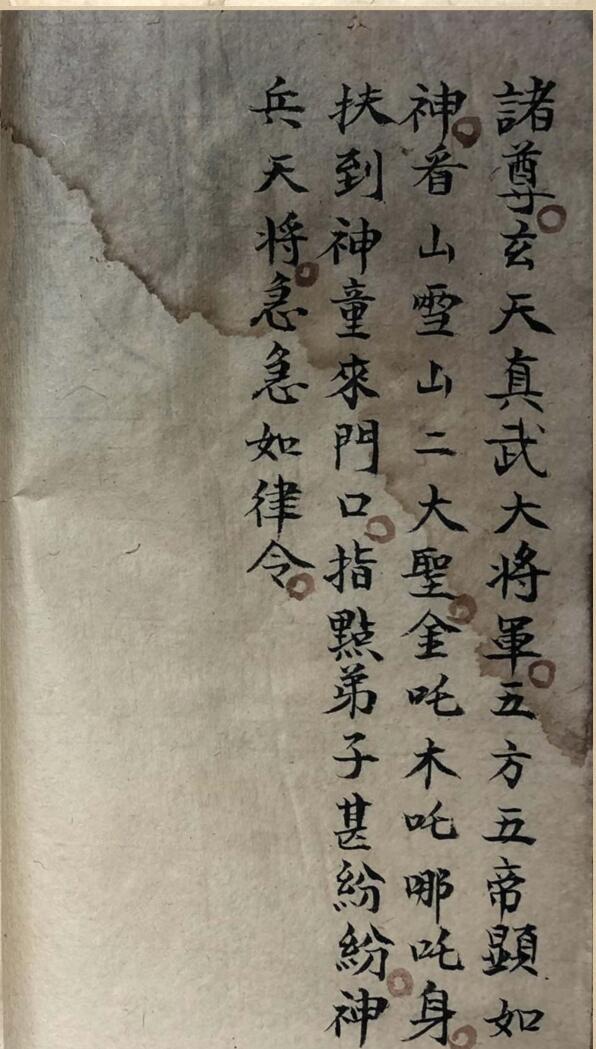 諸尊玄天真武大将軍五方五帝顕如
神看山雪山二大聖金吒木吒哪吒身
扶到神童來門口指點弟子甚紛紛神
兵天将急急如律令